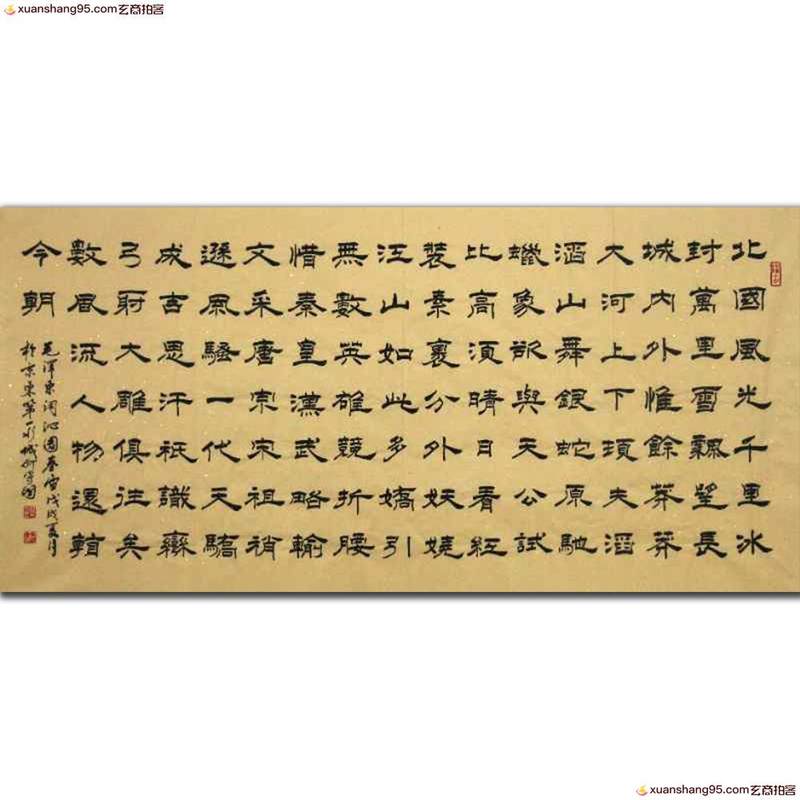 xuanshang95.com玄商拍客
北國風光千里冰
封萬里雪飄望長
城內外惟餘莽莽
大河上下頓失滔
滔山舞銀蛇原馳
蠟象欲與天公試
比高須晴日看紅
裝素裹分外妖嬈
江山如此多嬌引
無數英雄競折腰
惜秦皇漢武略輸
文采唐宗宋祖稍
遜風騷一代天驕
成吉思汗衹識彎
弓射大雕俱往矣
數風流人物還看
今朝
毛澤東詞沁園春雪戊戌夏月
於京東第一
xuanshang95.com玄商拍客